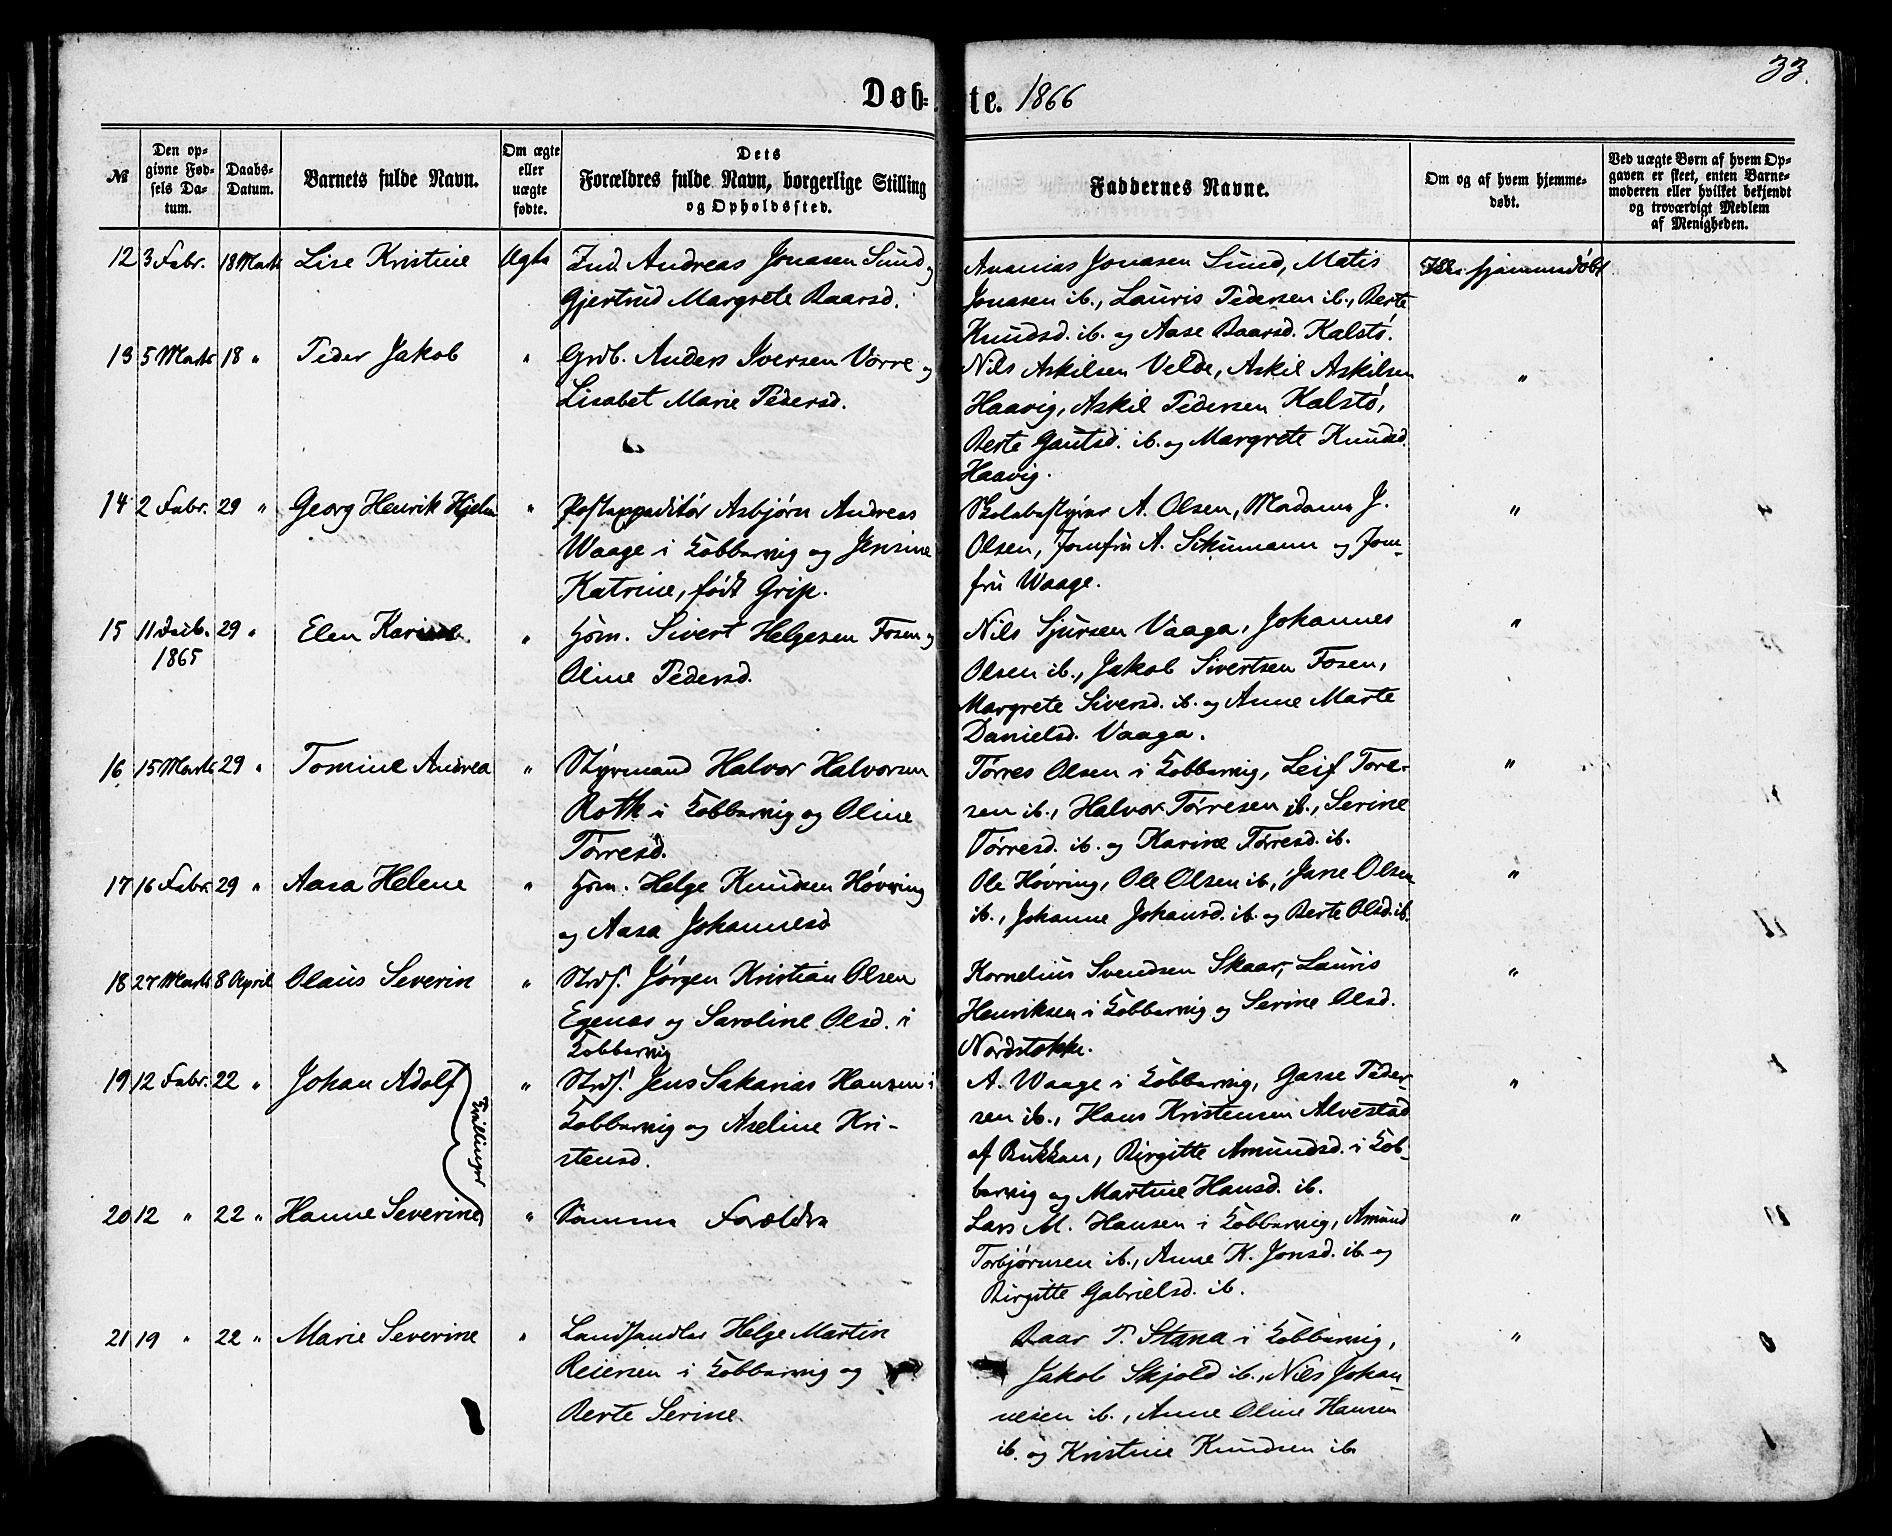 33.
Døbte. 1866
№
Den opgivne Fødsels Datum.
Daabs-Datum.
Barnets fulde Navn.
Om ægte eller uægte fødte.
Dets Forældres fulde Navn, borgerlige Stilling og Opholdssted.
Faddernes Navne.
Om og af hvem hjemmedøbt.
Ved uægte Børn af hvem Opgaven er skeet, enten Barnemoderen eller hvilket bekjendt og troværdigt Medlem af Menigheden.
12 3 Febr. 18 Marts Lise Kristine Ægte
Ind. Andreas Jonasen Sund og
Gjertrud Margrete Baarsd.
Ananias Jonasen Sund, Matis
Jonasen ib., Lauris Pedersen ib., Berte
Knudsd. ib. og Aase Baarsd. Kalstø.
Ikke hjemmedøbt
13 5 Marts 18 " Peder Jakob "
Grdb. Anders Iversen Vorre og
Lisabet Marie Pedersd.
Nils Askilsen Velde, Askil Askilsen
Haavig, Askil Pedersen Kalstø,
Berte Gautsd. ib. og Margrete Knudsd.
Haavig.
"
14 2 Febr. 29 " Georg Henrik Hjelm "
Postexpeditør Asbjørn Andreas
Waage i Kobbervig og Jensine
Katrine, født Grip.
Skolebestyrer A. Olsen, Madame J.
Olsen, Jomfru A. Schumann og Jom-
fru Waage.
"
15 11 Deb. 29 " Elen Karine "
1865
Hsm. Sivert Helgesen Fosen og
Oline Pedersd.
Nils Sjursen Vaaga, Johannes
Olsen ib., Jakob Sivertsen Fosen,
Margrete Siversd. ib. og Anne Marte
Danielsd. Vaaga.
"
16 15 Marts 29 " Tomine Andrea "
Styrmand Halvor Halvorsen
Roth i Kobbervig og Oline
Tørresd.
Tørres Olsen i Kobbervig, Leif Tore-
sen ib., Halvor Tørresen ib., Serine
Tørresd. ib. og Karine Tørresd. ib.
"
17 16 Febr. 29 " Aasa Helene "
Hsm. Helge Knudsen Høvring
og Aasa Johannesd
Ole Høvring, Ole Olsen ib., Jane Olsen
ib., Johanne Johansd. ib. og Berte Olsd. ib.
"
18 27 Marts 8 April Olaus Severin "
Strds. Jørgen Kristian Olsen
Egenes og Saroline Olsd. i
Kobbervig
Kornelius Svendsen Skaar, Lauris
Henriksen i Kobbervig og Serine Olsd.
Nordstokke.
"
19 12 Febr. 22 " Johan Adolf "
Tvillinger
Strds. Jens Sakarias Hansen i
Kobbervig og Aseline Kri-
stensd.
A. Waage i Kobbervig, Gasse Peder-
sen ib., Hans Kristensen Alvestad
af Bukken, Birgitte Amundsd. i Kob-
bervig og Martine Hansd. ib.
"
20 12 " 22 " Hanne Severine "
Samme Forældre
Lars M. Hansen i Kobbervig, Amund
Torbjørnsen ib., Anne K. Jonsd. ib. og
Birgitte Gabrielsd. ib.
"
21 19 " 22 " Marie Severine "
Landhandler Helge Martin
Reiersen i Kobbervig og
Berte Serine
Baar T. Stana i Kobbervig,
Jakob Skjold ib., Nils Johan-
nesen ib., Anne Oline Hansen
ib. og Kristine Knudsen ib.
"